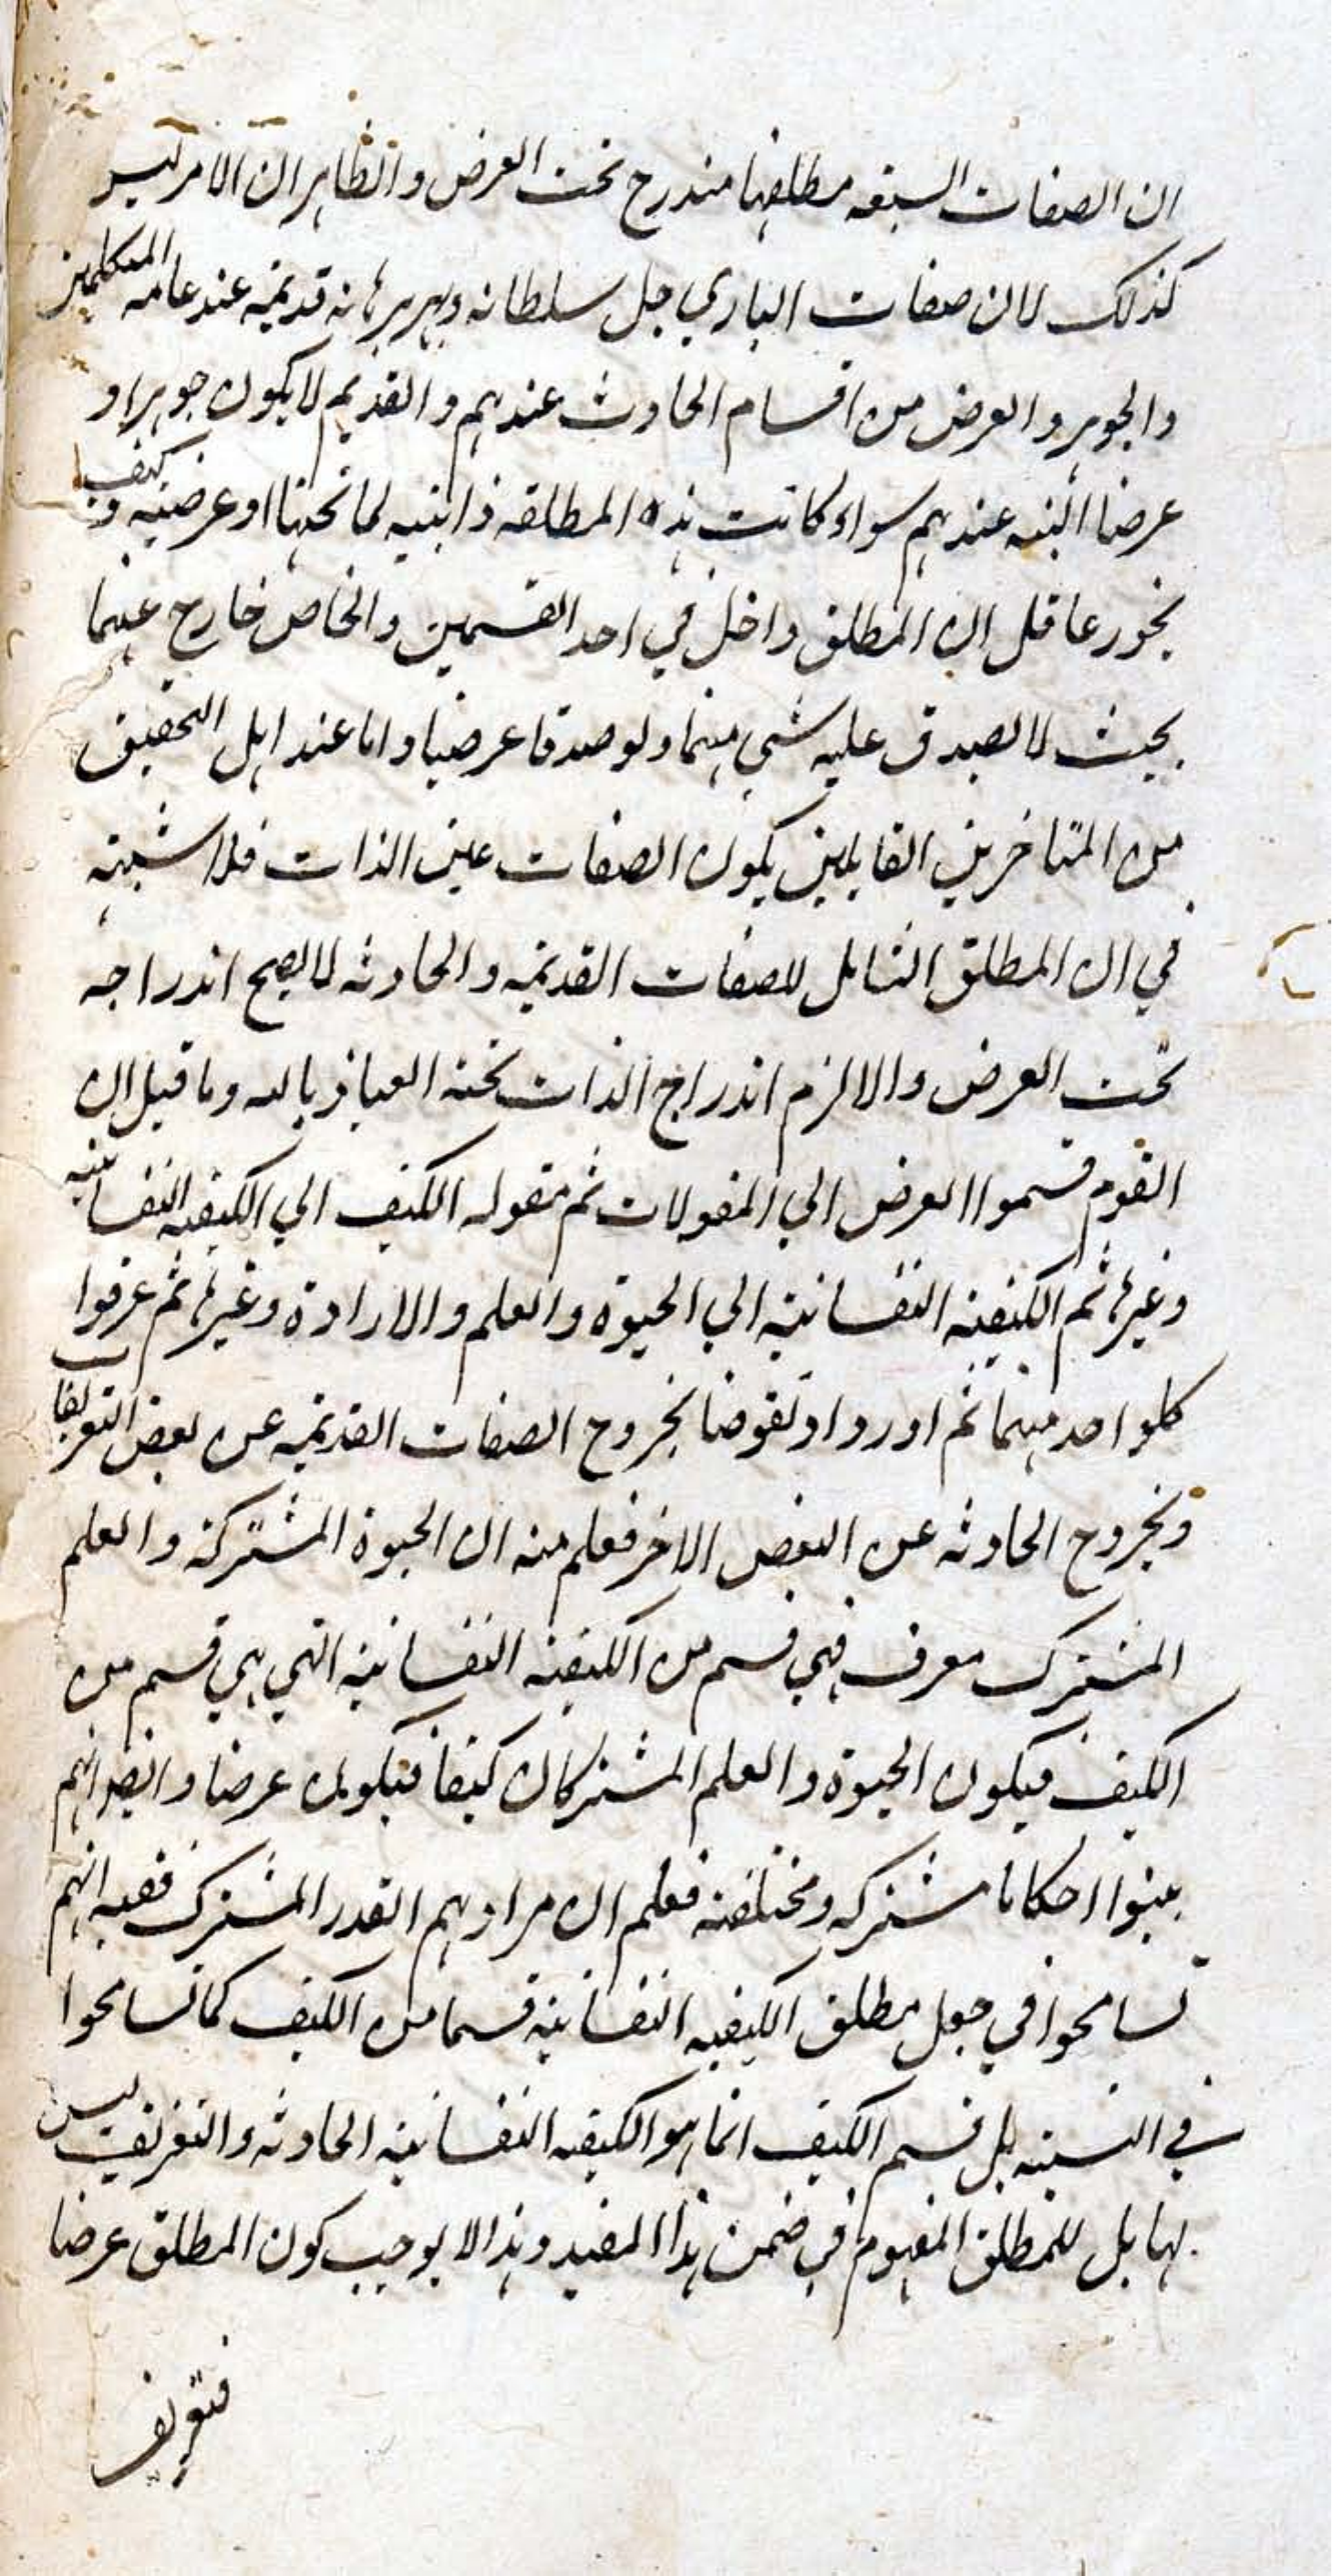 ان الصفات السبعه مطلقها مندرج تحت العرض والظاهر ان الامر ليس
كذلك لان صفات الباري جل سلطانه وبهر برهانه قديمه عند عامه المتكلمين
والجوهر والعرض من اقسام الحادث عندهم والقديم لا يكون جوهرا و
عرضا البته عندهم سواء كانت هذه المطلقه ذاتيه لما تحتها او عرضيه و كيف
يجوز عاقل ان المطلق داخل في احد القسمين والخاص خارج عنهما
بحيث لا يصدق عليه شي منهما ولو صدقا عرضيا واما عند اهل التحقيق
من المتاخرين القايلين بكون الصفات عين الذات فلا شبهه
في ان المطلق الشامل للصفات القديمه والحادثه لا يصح اندراجه
تحت العرض والا لزم اندراج الذات تحته العياذ بالله وما قيل ان
القوم قسموا العرض الي المقولات ثم مقوله الكيف الي الكيفيه النفسانيه
وغيرها ثم الكيفيه النفسانيه الي الحيوة والعلم والارادة وغيرها ثم عرفوا
كلواحد منهما ثم اوردوا نقوضا بخروج الصفات القديمه عن بعض التعريفات
وبخروج الحادثه عن البعض الاخر فعلم منه ان الحيوة المشتركه والعلم
المشترك معرف فهي قسم من الكيفيه النفسانيه التي هي قسم من
الكيف فيكون الحيوة والعلم المشتركان كيفا فيكونان عرضا وايضا انهم
بينوا احكاما مشتركه ومختلفه فعلم ان مرادهم القدر المشترك ففيه انهم
تسامحوا في جعل مطلق الكيفيه النفسانيه قسما من الكيف كما تسامحوا
في النسبه بل قسم الكيف انما هو الكيفيه النفسانيه الحادثه والتعريف ليس
لها بل للمطلق المفهوم في ضمن هذا المقيد وهذا لا يوجب كون المطلق عرضا
فتعريف